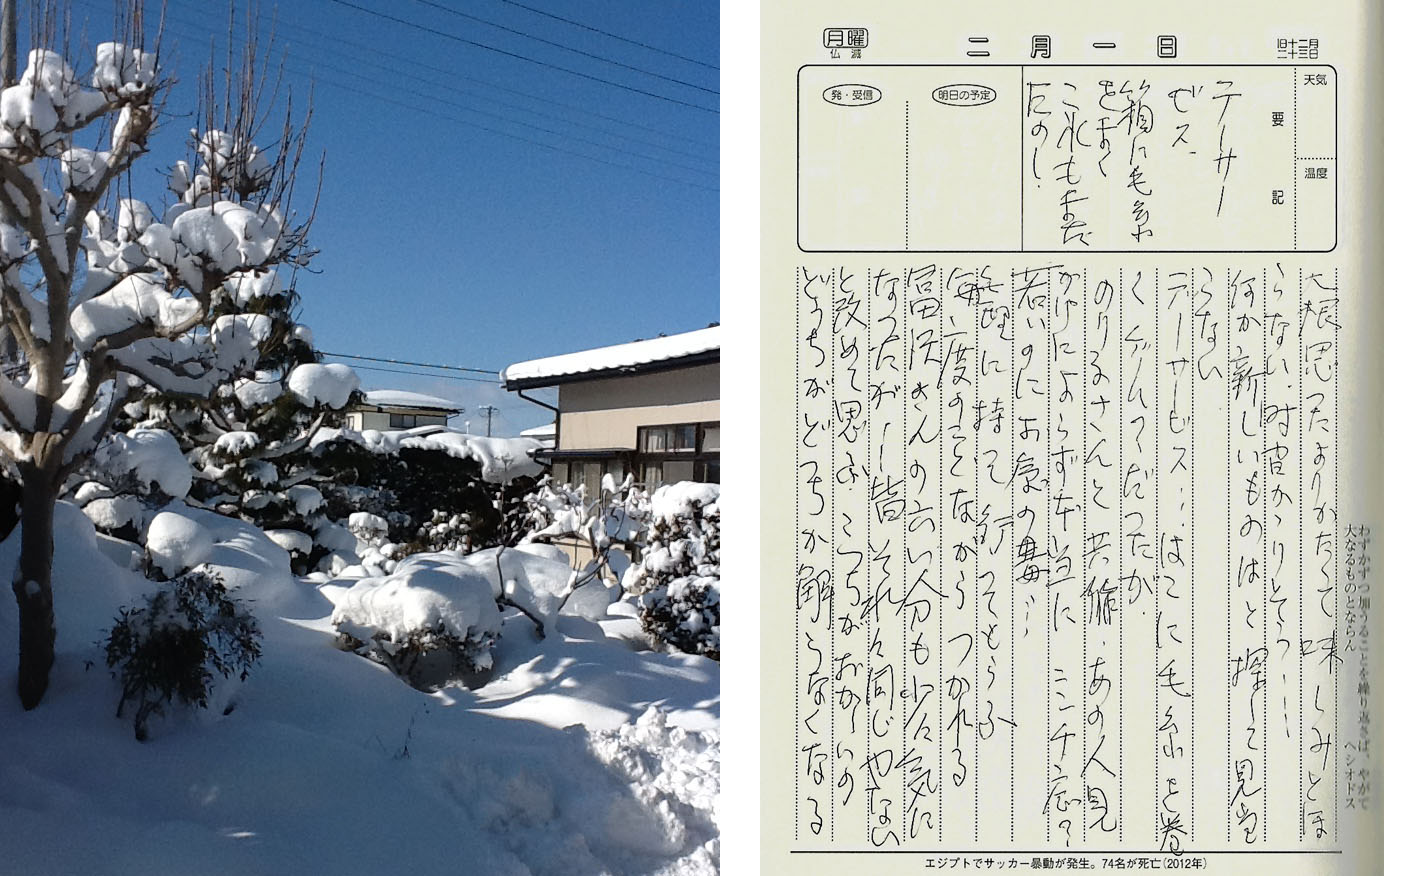 月曜
仏滅
二月一日
旧十二月
二十三日
天気
温度
要記
発・受信
明日の予定
デーサー
ビス.
箱に毛糸
をまく
これもまた
たのし.
大根思ったよりかたくて 味しみとほ
らない.時間かゝりそう
何か新しいものはと探して見当
らない
デーサービス…はこに毛糸を巻
く
だったが.
のりるさんと共

.あの人見
かけによらず本当に
若いのにお
の毒…
無理に持って行ってもらふ
毎度のことながら つかれる
さんの云い分も少々気に
なったが ー皆それ々同じやない
と改めて思ふ.こっちがおかしいの
どっちがどっちか解らなくなる
わずかずつ加うることを繰り返さば、やがて
大なるものとならん ヘシオドス
エジプトでサッカー暴動が発生。74名が死亡(2012年)